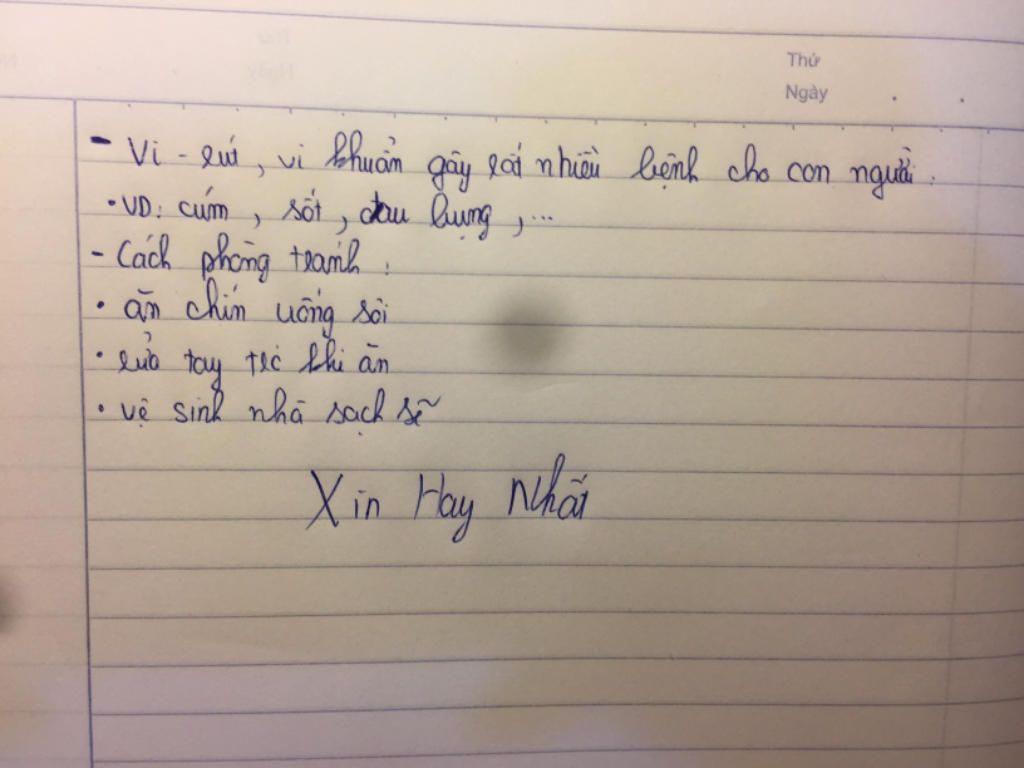 Thứ
Ngày
- Vi - rút, vi khuẩn gây rất nhiều bệnh cho con người.
• VD: cúm, sốt, đau bụng, ...
- Cách phòng tránh:
• ăn chín uống sôi
• rửa tay trc khi ăn
• vệ sinh nhà sạch sẽ
Xin Hay Nhất